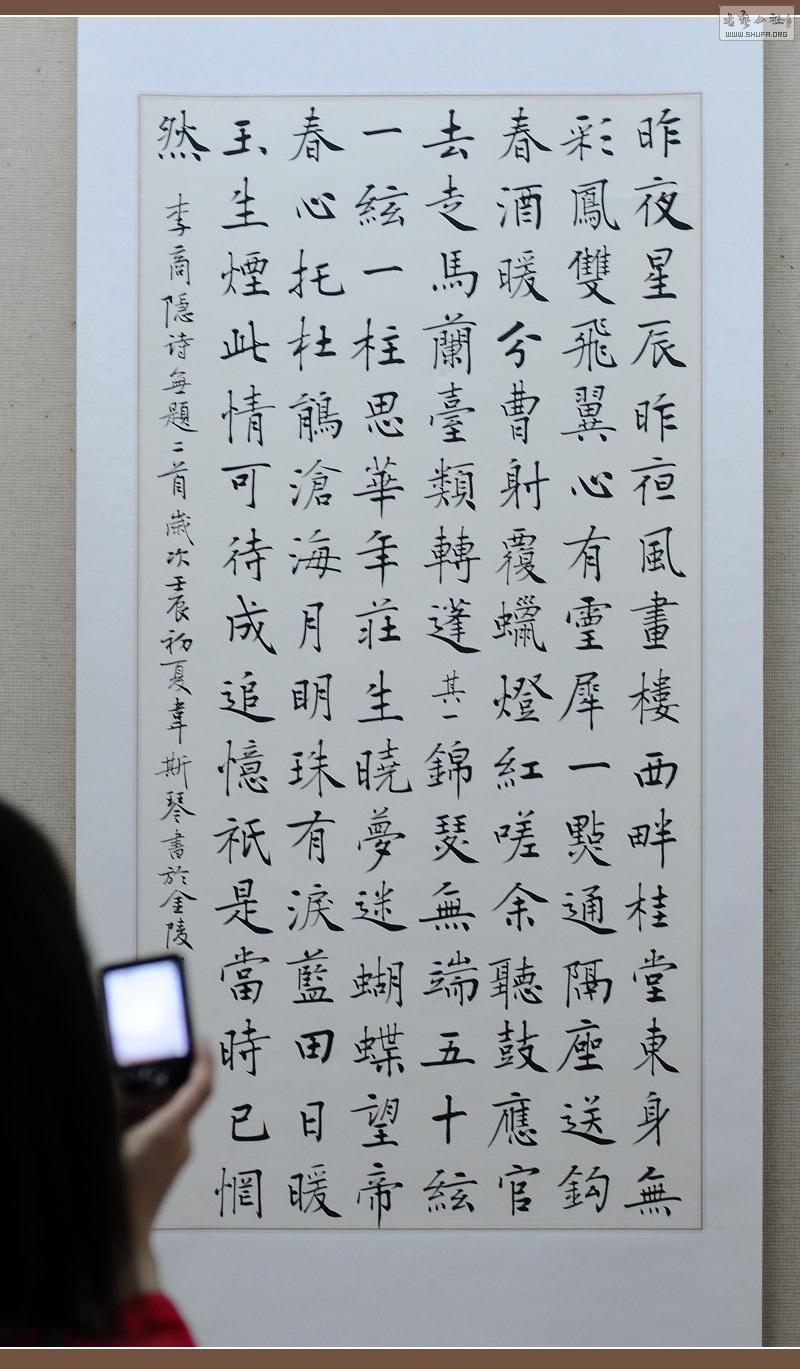 昨夜星辰昨夜風畫樓西畔桂堂東身無
彩鳳雙飛翼心有靈犀一點通隔座送鈎
春酒暖分曹射覆蠟燈紅嗟余聽鼓應官
去走馬蘭臺類轉蓬其一錦瑟無端五十絃
一絃一柱思華年莊生曉夢迷蝴蝶望帝
春心托杜鵑滄海月明珠有淚藍田日暖
玉生煙此情可待成追憶祇是當時已惘
然
李商隱诗無題二首歲次壬辰初夏韋斯琴書於金陵
书艺公社
www.SHUFA.ORG